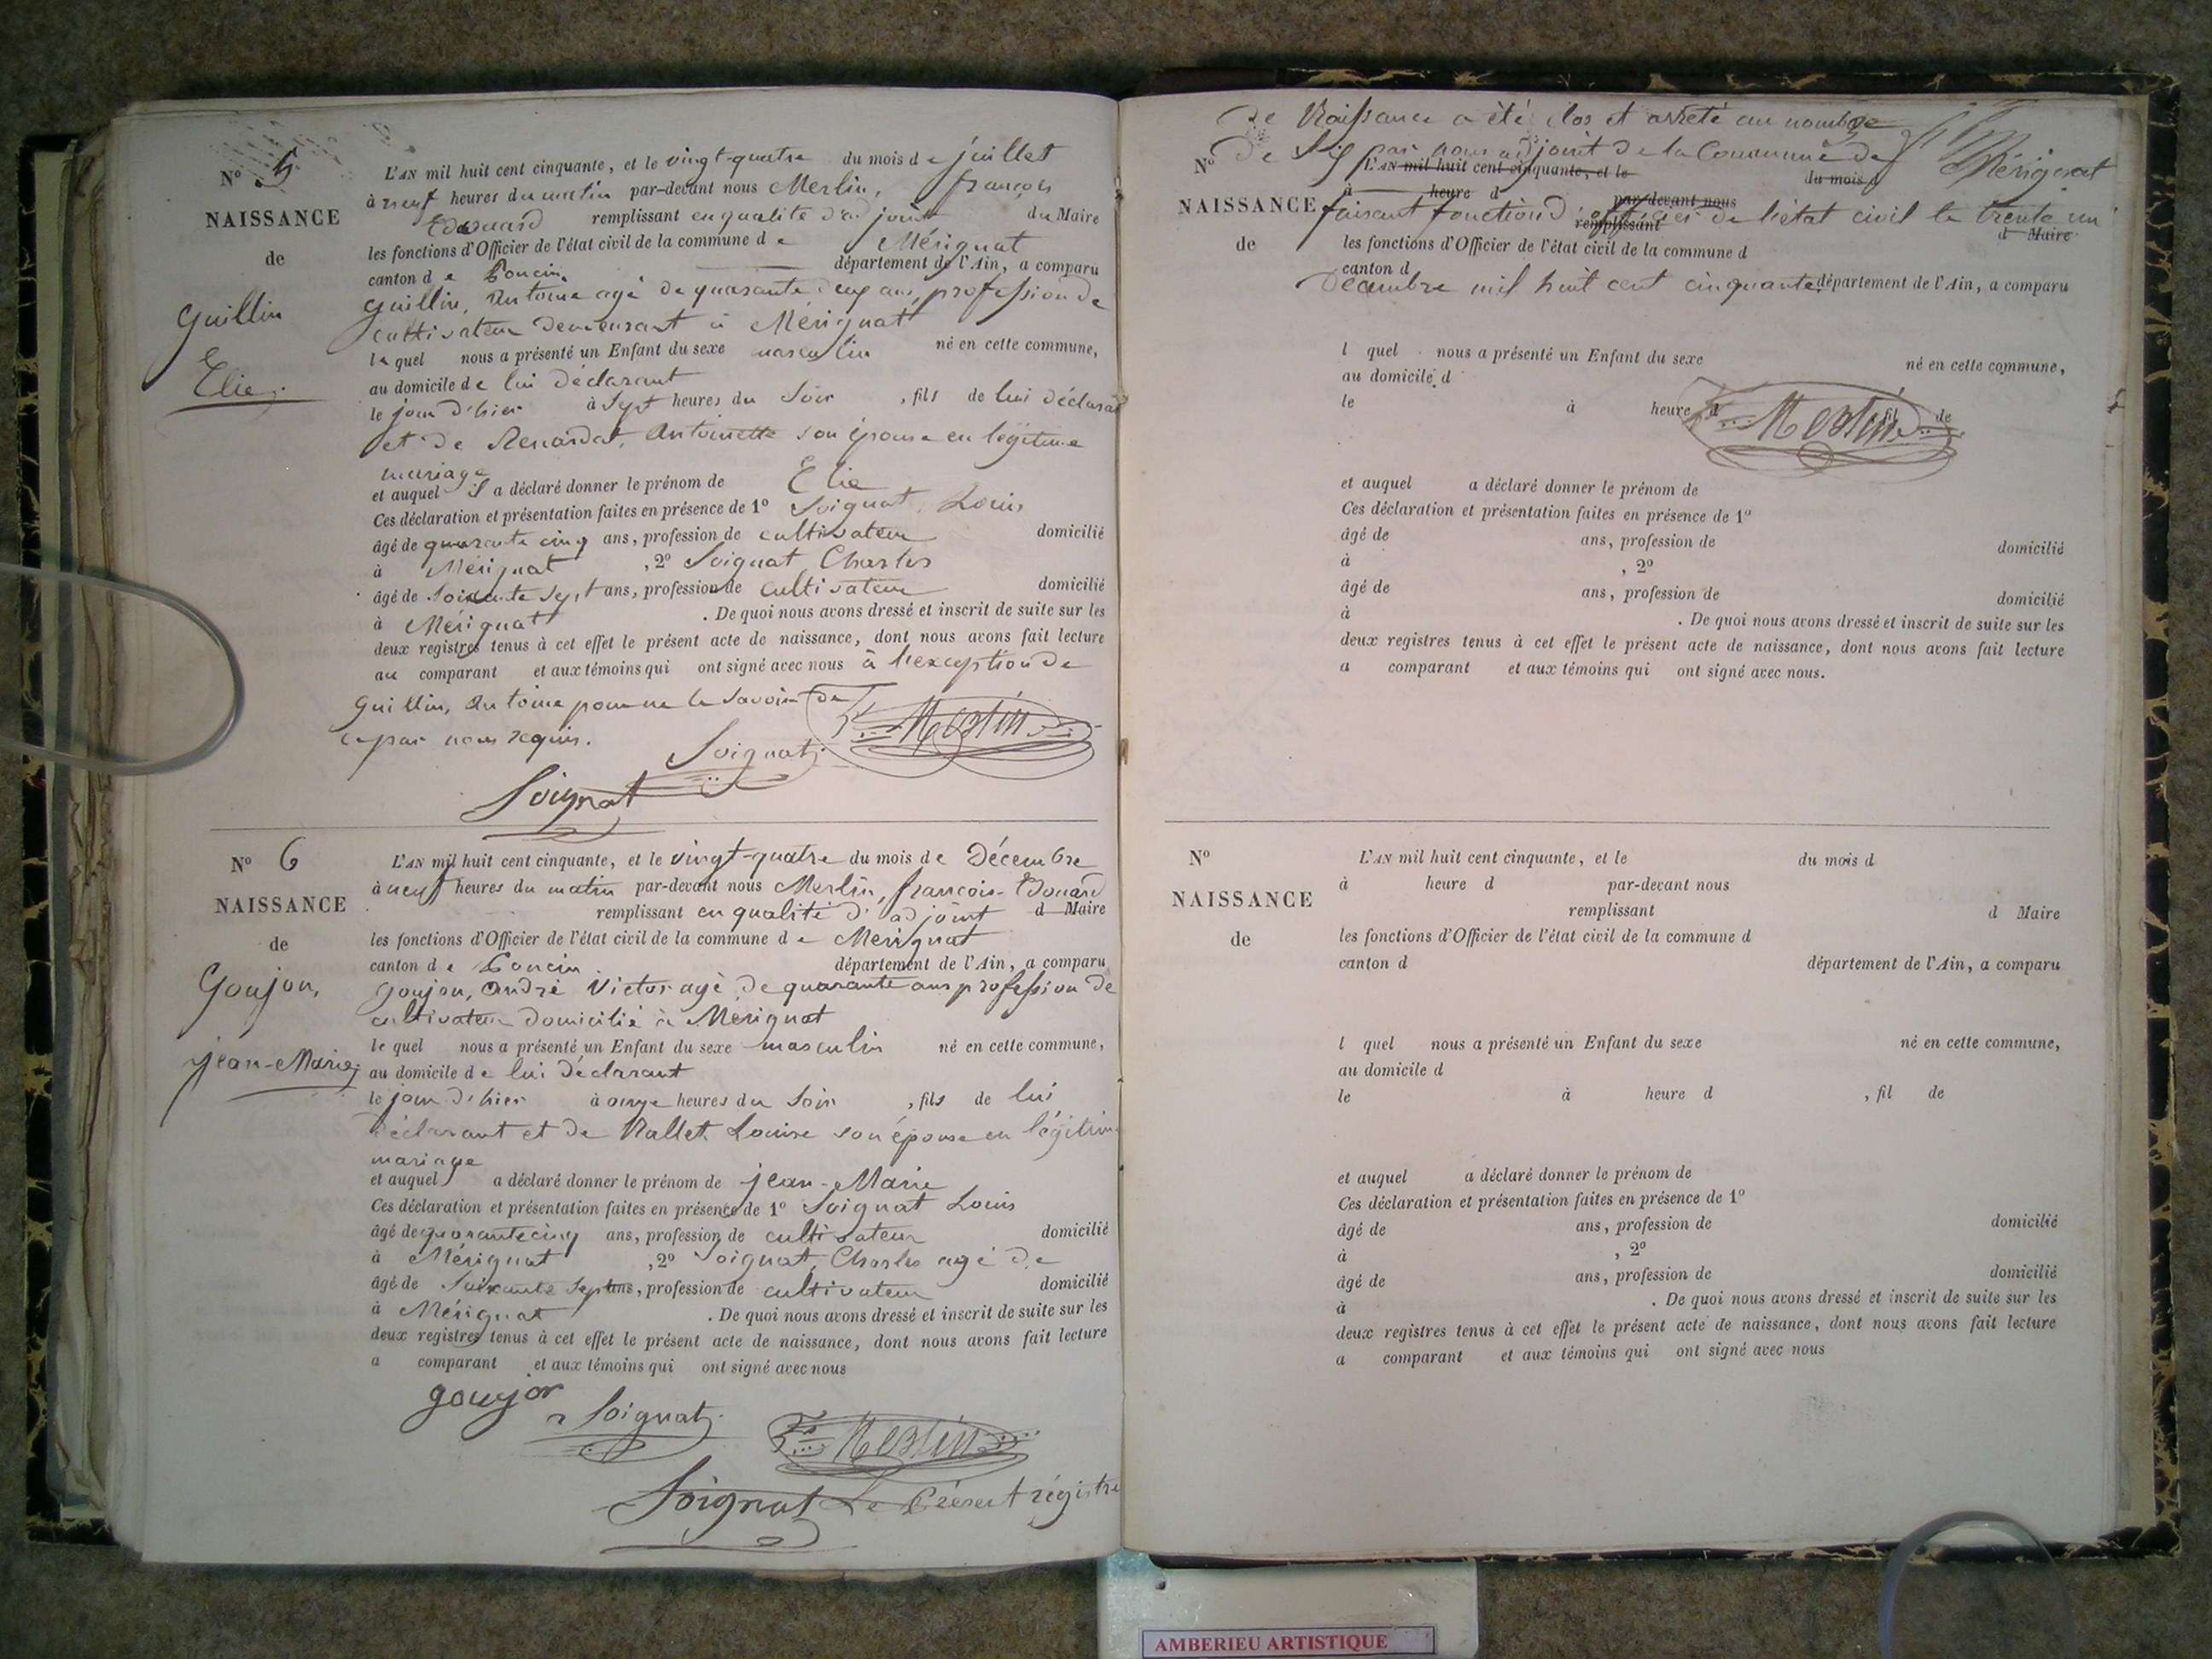 Nº 5
NAISSANCE
de
Guillin
Elie.
L'AN mil huit cent cinquante, et le vingt-quatre du mois de juillet
à neuf heures du matin par-devant nous Merlin, françois
Edouard remplissant en qualité d'adjoint du Maire
les fonctions d'Officier de l'état civil de la commune de Mérignat
canton de Poncin département de l'Ain, a comparu
Guillin, Antoine agé de quarante deux ans, profession de
cultivateur demeurant à Mérignat
lequel nous a présenté un Enfant du sexe masculin né en cette commune,
au domicile de lui déclarant
le jour d'hier à Sept heures du Soir, fils de lui déclarant
et de Renardat, Antoinette son épouse en légitime
mariage
et auquel il a déclaré donner le prénom de Elie
Ces déclaration et présentation faites en présence de 1º Soignat, Louis
âgé de quarante cinq ans, profession de cultivateur domicilié
à Mérignat, 2º Soignat Charles
âgé de Soixante Sept ans, profession de cultivateur domicilié
à Mérignat. De quoi nous avons dressé et inscrit de suite sur les
deux registres tenus à cet effet le présent acte de naissance, dont nous avons fait lecture
au comparant et aux témoins qui ont signé avec nous à l'exception de
Guillin, Antoine pour ne le Savoir de
ce par nous requis.
Soignat
Merlin
Soignat
Nº 6
NAISSANCE
de
Goujon,
jean-Marie.
L'AN mil huit cent cinquante, et le vingt-quatre du mois de Décembre
à neuf heures du matin par-devant nous Merlin, françois-Edouard
remplissant en qualité d'adjoint d Maire
les fonctions d'Officier de l'état civil de la commune de Mérignat
canton de Poncin département de l'Ain, a comparu
Goujon, André Victor agé de quarante ans profession de
cultivateur domicilié à Mérignat
lequel nous a présenté un Enfant du sexe masculin né en cette commune,
au domicile de lui déclarant
le jour d'hier à onze heures du Soir, fils de lui
déclarant et de Nallet Louise son épouse en légitime
mariage
et auquel a déclaré donner le prénom de jean-Marie
Ces déclaration et présentation faites en présence de 1º Soignat Louis
âgé de quarante cinq ans, profession de cultivateur domicilié
à Mérignat, 2º Soignat, Charles agé de
âgé de Soixante Sept ans, profession de cultivateur domicilié
à Mérignat. De quoi nous avons dressé et inscrit de suite sur les
deux registres tenus à cet effet le présent acte de naissance, dont nous avons fait lecture
a comparant et aux témoins qui ont signé avec nous
goujon
Soignat
Merlin
Soignat Le Présent régistre
de Naissance a été clos et arreté au nombre
de Six par nous adjoint de la Commune de Mérignat
Nº
L'AN mil huit cent cinquante, et le du mois d
à heure d par-devant nous
NAISSANCE
faisant fonction d'officier de l'état civil le trente un
remplissant d Maire
de
les fonctions d'Officier de l'état civil de la commune d
canton d département de l'Ain, a comparu
Décembre mil huit cent cinquante.
l quel nous a présenté un Enfant du sexe né en cette commune,
au domicile d
le à heure d , fil de
Merlin
et auquel a déclaré donner le prénom de
Ces déclaration et présentation faites en présence de 1º
âgé de ans, profession de domicilié
à , 2º
âgé de ans, profession de domicilié
à . De quoi nous avons dressé et inscrit de suite sur les
deux registres tenus à cet effet le présent acte de naissance, dont nous avons fait lecture
a comparant et aux témoins qui ont signé avec nous.
Nº
NAISSANCE
de
L'AN mil huit cent cinquante, et le du mois d
à heure d par-devant nous
remplissant d Maire
les fonctions d'Officier de l'état civil de la commune d
canton d département de l'Ain, a comparu
l quel nous a présenté un Enfant du sexe né en cette commune,
au domicile d
le à heure d , fil de
et auquel a déclaré donner le prénom de
Ces déclaration et présentation faites en présence de 1º
âgé de ans, profession de domicilié
à , 2º
âgé de ans, profession de domicilié
à . De quoi nous avons dressé et inscrit de suite sur les
deux registres tenus à cet effet le présent acte de naissance, dont nous avons fait lecture
a comparant et aux témoins qui ont signé avec nous
AMBERIEU ARTISTIQUE